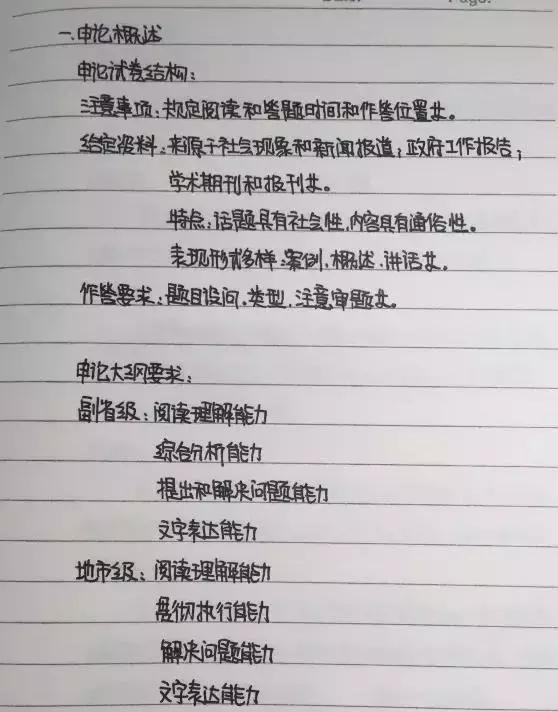 Page:
一.申论概述
申论试卷结构:
注意事项:规定阅读和答题时间和作答位置等。
给定资料:来源于社会现象和新闻报道;政府工作报告;
学术期刊和报刊等。
特点:话题具有社会性,内容具有通俗性。
表现形式多样:案例、概述、讲话等。
作答要求:题目设问、类型、注意审题等。
申论大纲要求:
副省级:阅读理解能力
综合分析能力
提出和解决问题能力
文字表达能力
地市级:阅读理解能力
贯彻执行能力
解决问题能力
文字表达能力